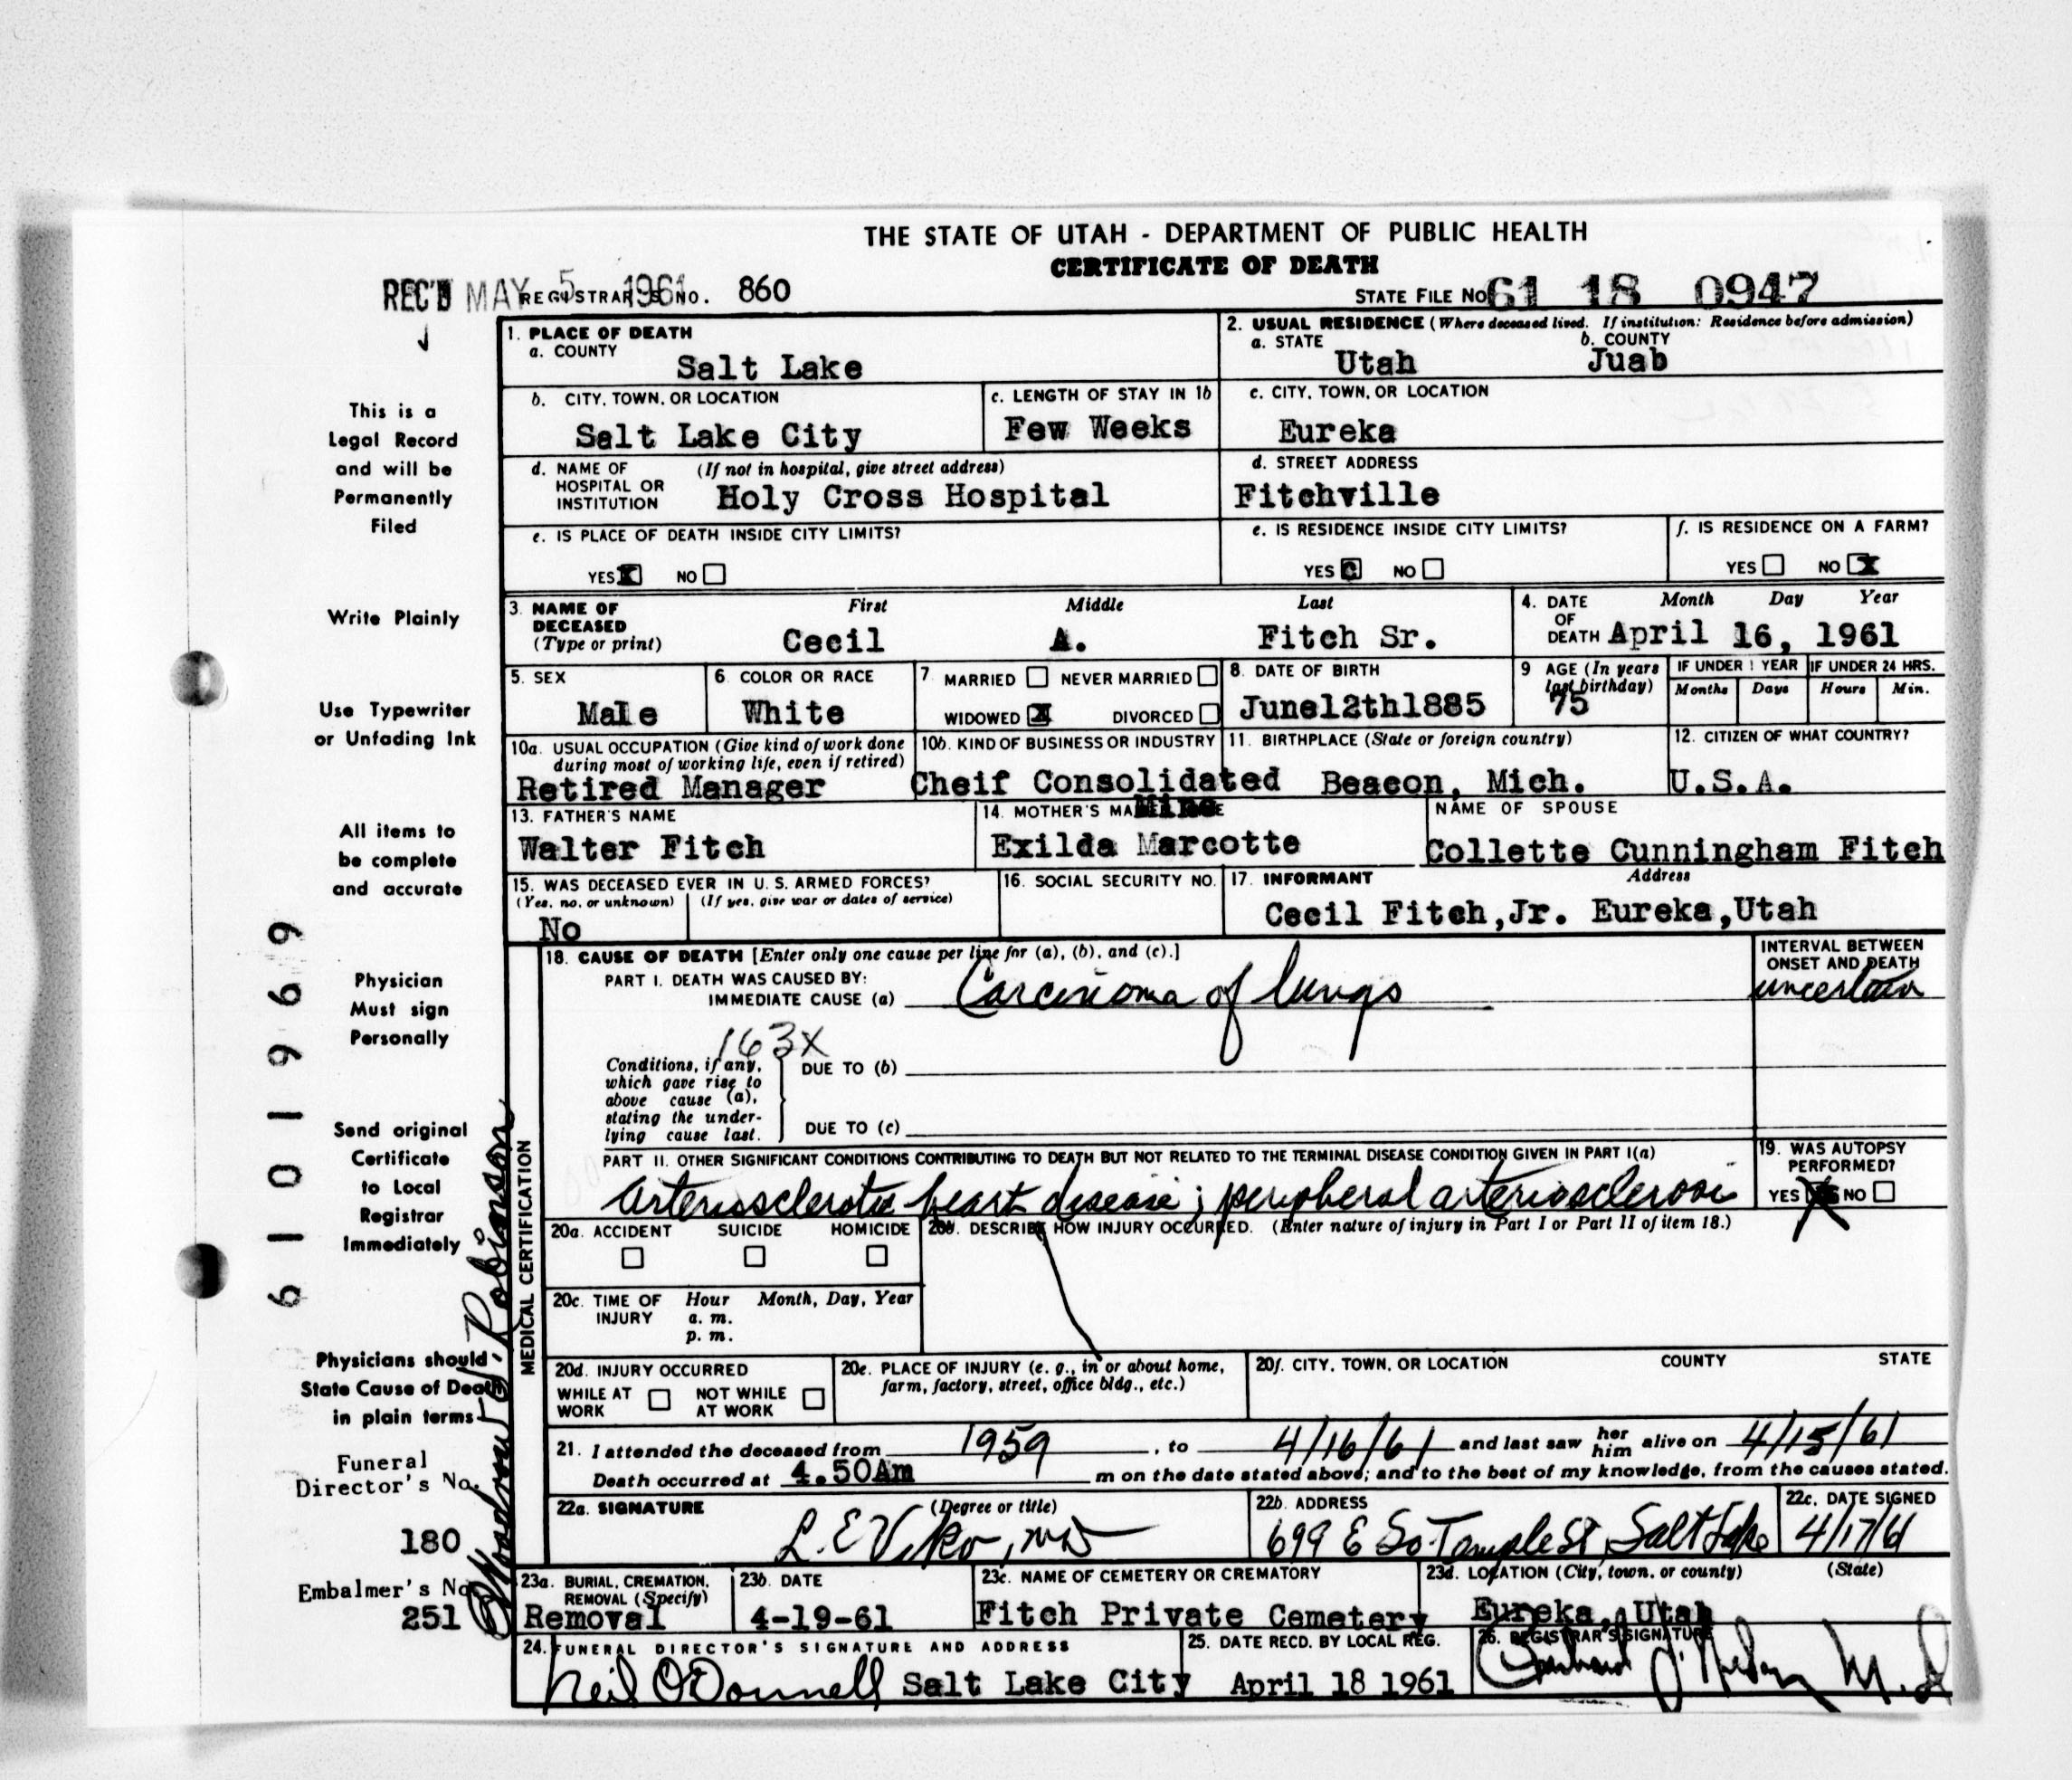 THE STATE OF UTAH - DEPARTMENT OF PUBLIC HEALTH
CERTIFICATE OF DEATH
REC'D MAY 5 1961 REGISTRAR'S NO. 860
STATE FILE No 61 18 0947
This is a
Legal Record
and will be
Permanently
Filed
Write Plainly
Use Typewriter
or Unfading Ink
All items to
be complete
and accurate
Physician
Must sign
Personally
Send original
Certificate
to Local
Registrar
Immediately
Physicians should
State Cause of Death
in plain terms
Funeral
Director's No.
180
Embalmer's No
251
6101969
Robinson
1. PLACE OF DEATH
a. COUNTY
Salt Lake
2. USUAL RESIDENCE (Where deceased lived. If institution: Residence before admission)
a. STATE b. COUNTY
Utah Juab
b. CITY, TOWN, OR LOCATION
Salt Lake City
c. LENGTH OF STAY IN 1b
Few Weeks
c. CITY, TOWN, OR LOCATION
Eureka
d. NAME OF HOSPITAL OR INSTITUTION (If not in hospital, give street address)
Holy Cross Hospital
d. STREET ADDRESS
Fitchville
e. IS PLACE OF DEATH INSIDE CITY LIMITS?
YES X NO
e. IS RESIDENCE INSIDE CITY LIMITS?
YES NO
f. IS RESIDENCE ON A FARM?
YES NO X
3. NAME OF DECEASED (Type or print)
First Middle Last
Cecil A. Fitch Sr.
4. DATE OF DEATH Month Day Year
April 16, 1961
5. SEX
Male
6. COLOR OR RACE
White
7. MARRIED NEVER MARRIED
WIDOWED X DIVORCED
8. DATE OF BIRTH
June12th1885
9 AGE (In years last birthday)
75
IF UNDER 1 YEAR
Months Days
IF UNDER 24 HRS.
Hours Min.
10a. USUAL OCCUPATION (Give kind of work done during most of working life, even if retired)
Retired Manager
10b. KIND OF BUSINESS OR INDUSTRY
Cheif Consolidated
Mine
11. BIRTHPLACE (State or foreign country)
Beacon, Mich.
12. CITIZEN OF WHAT COUNTRY?
U.S.A.
13. FATHER'S NAME
Walter Fitch
14. MOTHER'S MAIDEN NAME
Exilda Marcotte
NAME OF SPOUSE
Collette Cunningham Fitch
15. WAS DECEASED EVER IN U. S. ARMED FORCES?
(Yes, no, or unknown) (If yes, give war or dates of service)
No
16. SOCIAL SECURITY NO.
17. INFORMANT Address
Cecil Fitch, Jr. Eureka, Utah
MEDICAL CERTIFICATION
18. CAUSE OF DEATH [Enter only one cause per line for (a), (b), and (c).]
PART I. DEATH WAS CAUSED BY:
IMMEDIATE CAUSE (a) Carcinoma of lungs
INTERVAL BETWEEN ONSET AND DEATH
uncertain
163X
Conditions, if any, which gave rise to above cause (a), stating the underlying cause last.
DUE TO (b)
DUE TO (c)
PART II. OTHER SIGNIFICANT CONDITIONS CONTRIBUTING TO DEATH BUT NOT RELATED TO THE TERMINAL DISEASE CONDITION GIVEN IN PART I(a)
arteriosclerotic heart disease; peripheral arteriosclerosis
19. WAS AUTOPSY PERFORMED?
YES X NO
20a. ACCIDENT SUICIDE HOMICIDE
20b. DESCRIBE HOW INJURY OCCURRED. (Enter nature of injury in Part I or Part II of item 18.)
20c. TIME OF INJURY Hour Month, Day, Year
a. m.
p. m.
20d. INJURY OCCURRED
WHILE AT WORK NOT WHILE AT WORK
20e. PLACE OF INJURY (e. g., in or about home, farm, factory, street, office bldg., etc.)
20f. CITY, TOWN, OR LOCATION COUNTY STATE
21. I attended the deceased from 1959, to 4/16/61 and last saw her him alive on 4/15/61
Death occurred at 4.50Am m on the date stated above; and to the best of my knowledge, from the causes stated.
22a. SIGNATURE (Degree or title)
L. E Viko, MD
22b. ADDRESS
699 E So. Temple St, Salt Lake
22c. DATE SIGNED
4/17/61
23a. BURIAL, CREMATION, REMOVAL (Specify)
Removal
23b. DATE
4-19-61
23c. NAME OF CEMETERY OR CREMATORY
Fitch Private Cemetery
23d. LOCATION (City, town, or county) (State)
Eureka, Utah
24. FUNERAL DIRECTOR'S SIGNATURE AND ADDRESS
Neil O'Donnell Salt Lake City
25. DATE RECD. BY LOCAL REG.
April 18 1961
26. REGISTRAR'S SIGNATURE